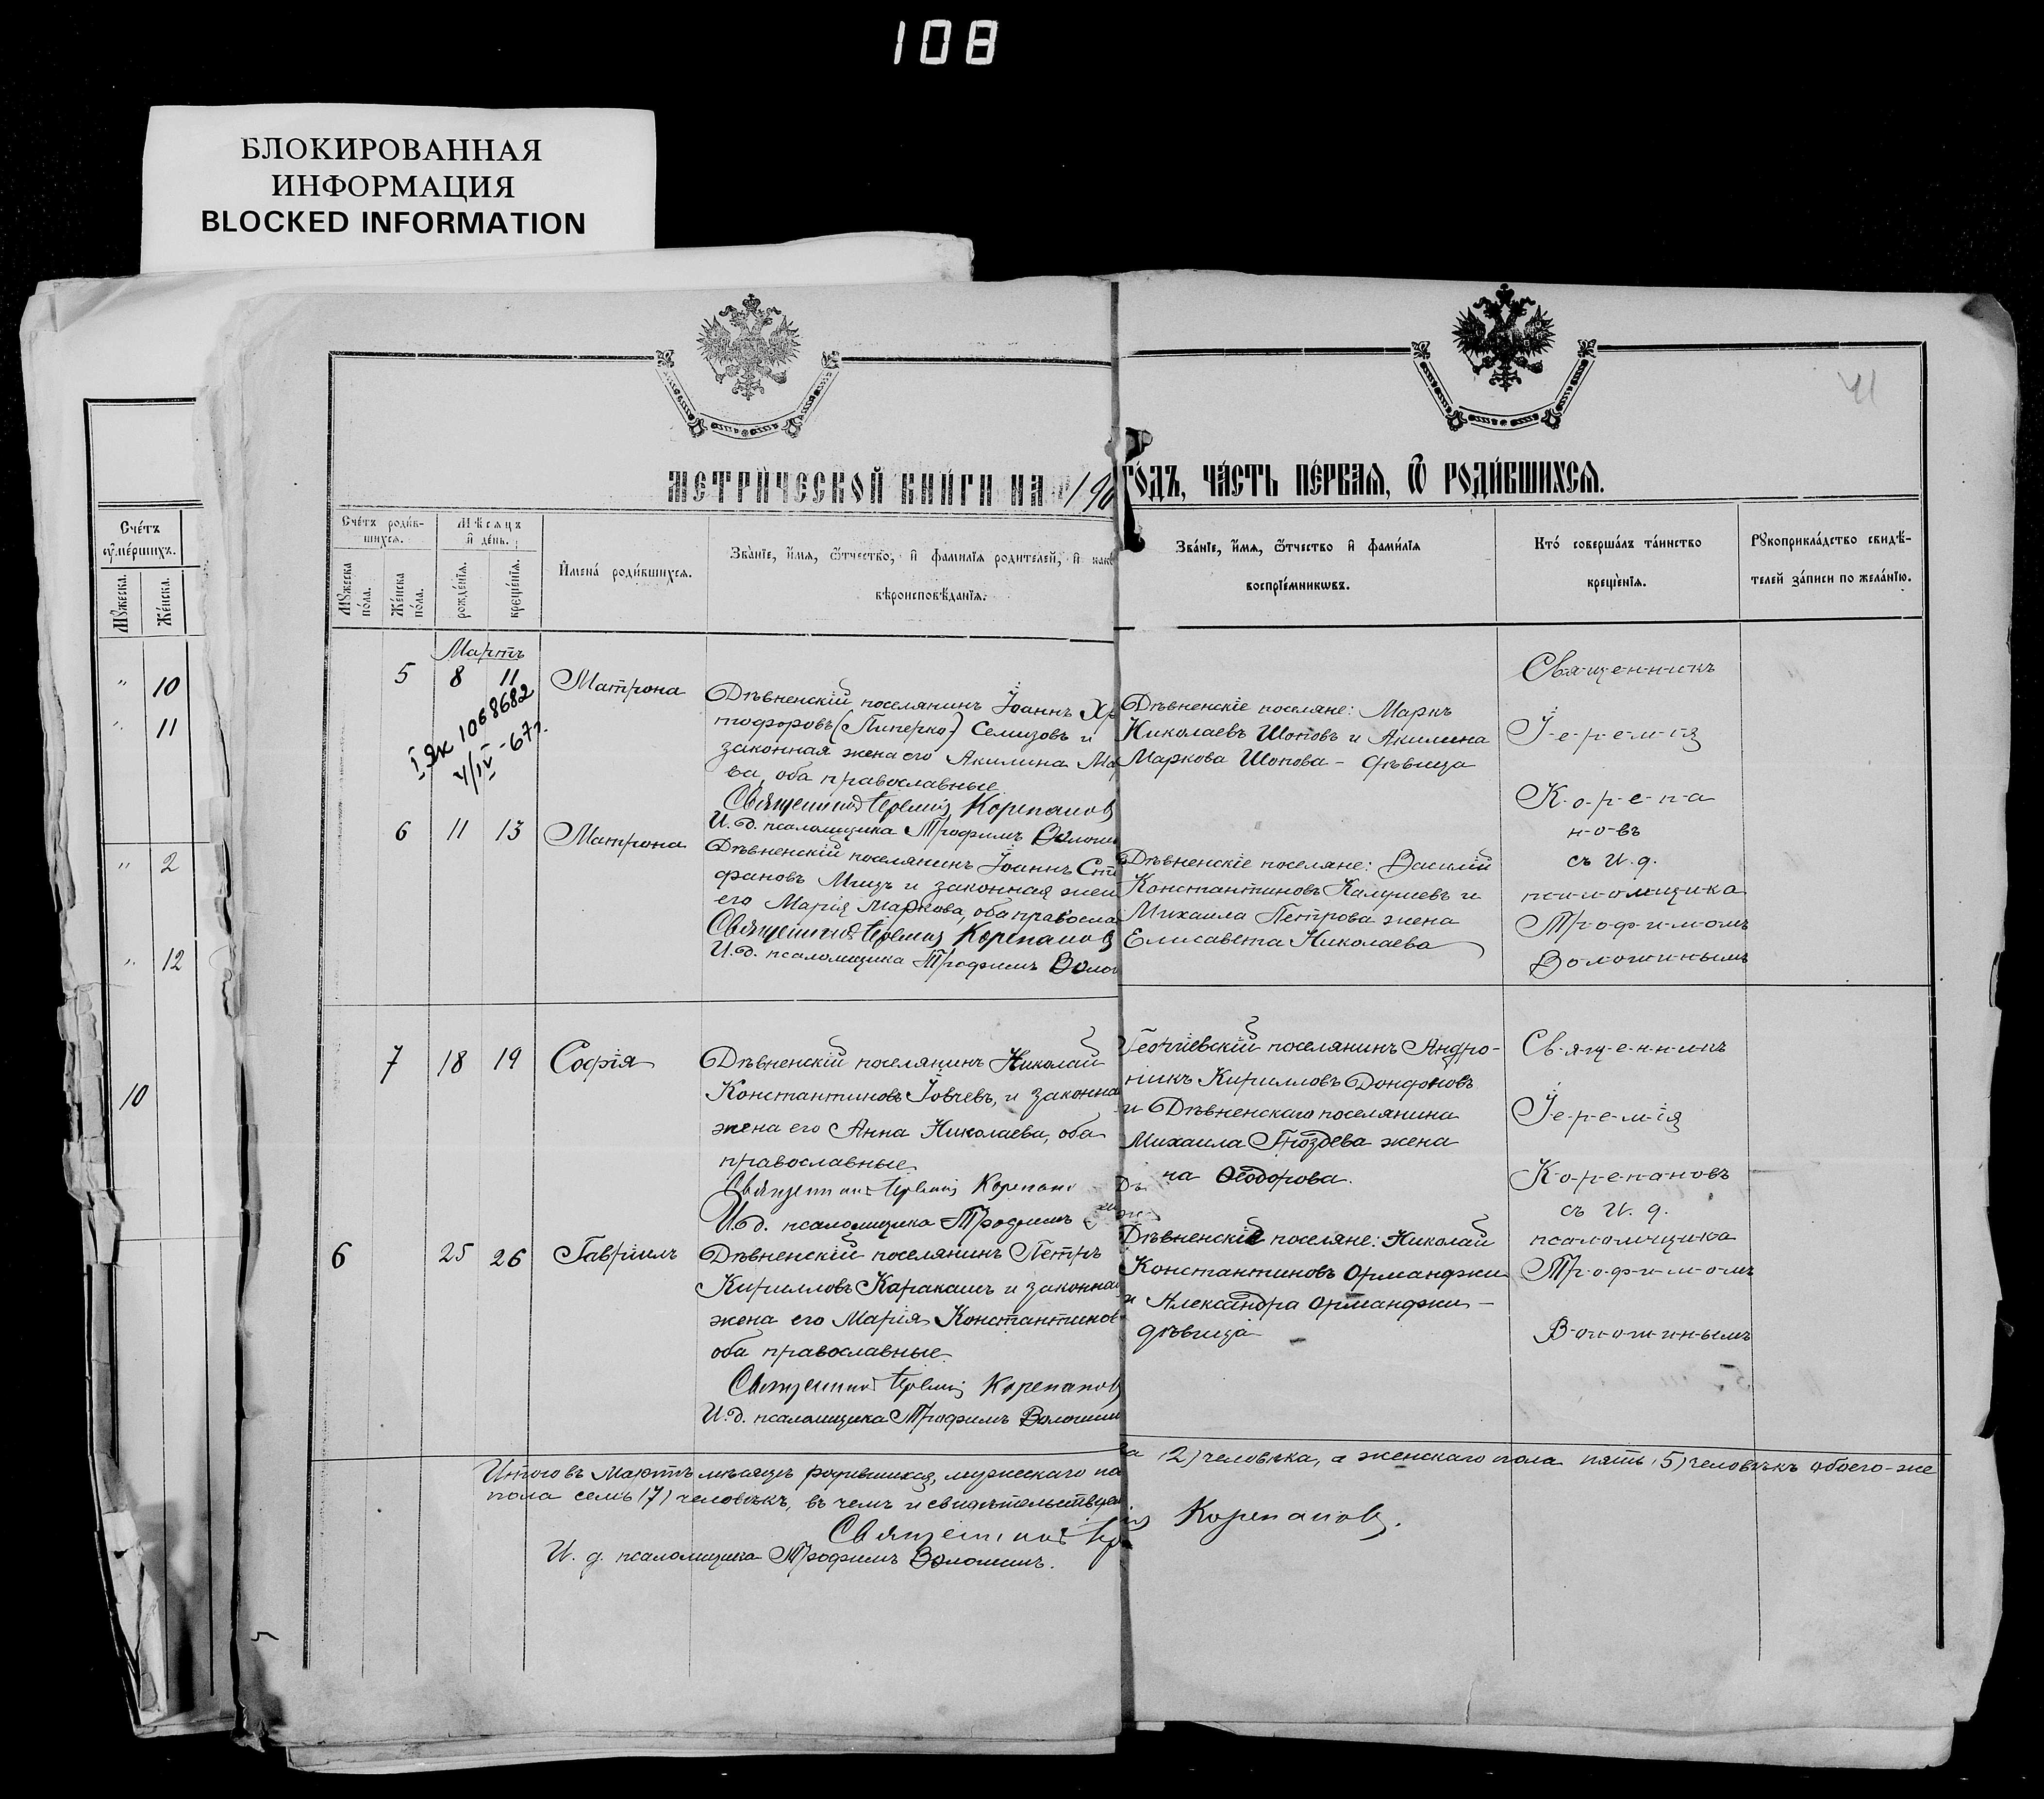 108
БЛОКИРОВАННАЯ
ИНФОРМАЦИЯ
BLOCKED INFORMATION
41
МЕТРИ́ЧЕСКОЙ КНИ́ГИ НА 190
ГО́ДЪ, ЧА́СТЬ ПЕ́РВАЯ, Ѿ РОДИ́ВШИХСЯ.
Сче́тъ
ᲂу҆ме́ршихъ.
Мꙋ́жеска.
Же́нска.
" 10
" 11
" 2
" 12
10
Сче́тъ роди́в-
шихся.
Мꙋ́жеска
по́ла.
Же́нска
по́ла.
Мѣ́сяцъ
и҆ де́нь.
рожде́нїя.
креще́нїя.
И҆мена̀ роди́вшихся.
Зва́нїе, и҆́мя, ѻ҆́тчество, и҆ фами́лїя родителей, и҆ како
вѣроисповѣ́данїя.
Зва́нїе, и҆́мя, ѻ҆́тчество и҆ фами́лїя
воспрїе́мниковъ.
Кто́ соверша́лъ та́инство
креще́нїя.
Рꙋкоприкла́дство свидѣ́-
телей за́писи по жела́нїю.
Мартъ
5 8 11 Матрона
I Як 1068682
4/IV-67г.
Дѣвненскій поселянинъ Іоаннъ Хр
тофоровъ (Пиперко) Семизовъ и
законная жена его Акилина Ма
ва, оба православные
Священникъ Іеремія Корепановъ
И.д. псаломщика Трофимъ Волоши
Дѣвненскіе поселяне: Маркъ
Николаевъ Шоповъ и Акилина
Маркова Шопова - дѣвица
Священникъ
Іеремія
Корепа
новъ
съ И.д.
псаломщика
Трофимомъ
Волошинымъ
6 11 13 Матрона
Дѣвненскій поселянинъ Іоаннъ Сте
фановъ Мицъ и законная жен
его Марія Маркова, оба правосла
Священникъ Іеремія Корепановъ
И.д. псаломщика Трофимъ Волог
Дѣвненскіе поселяне: Василій
Константиновъ Калушевъ и
Михаила Петрова жена
Елисавета Николаева
7 18 19 Софія
Дѣвненскій поселянинъ Николай
Константиновъ Іовчевъ, и законна
жена его Анна Николаева, оба
православные
Священникъ Іеремія Корепано
И.д. псаломщика Трофимъ
Георгіевскій поселянинъ Андро-
никъ Кирилловъ Дондоновъ
и Дѣвненскаго поселянина
Михаила Гноздева жена
на Ѳеодорова.
Священникъ
Іеремія
Корепановъ
съ И.д.
псаломщика
Трофимомъ
Волошинымъ
6 25 26 Гавріилъ
Дѣвненскій поселянинъ Петръ
Кирилловъ Каракашъ и законная
жена его Марія Константинов
оба православные
Священникъ Іеремія Корепановъ
И.д. псаломщика Трофимъ Волошин
Дѣвненскіе поселяне: Николай
Константиновъ Орманджи
и Александра Орманджи -
дѣвица
Итого въ Мартѣ мѣсяцѣ родившихся, мужескаго по
ла (2) человѣка, а женскаго пола пять (5) человѣкъ обоего-же
пола семь (7) человѣкъ, въ чемъ и свидѣтельствуем
Священникъ Іеремія Корепановъ.
И.д. псаломщика Трофимъ Волошинъ.